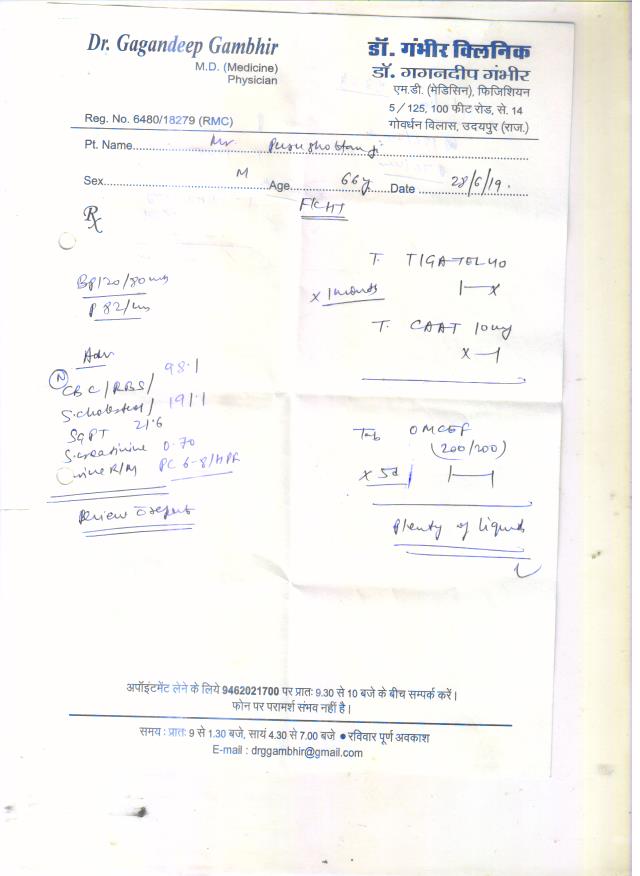 Dr. Gagandeep Gambhir
M.D. (Medicine)
Physician
Reg. No. 6480/18279 (RMC)
डॉ. गंभीर क्लिनिक
डॉ. गगनदीप गंभीर
एम.डी. (मेडिसिन), फिजिशियन
5/125, 100 फीट रोड, से. 14
गोवर्धन विलास, उदयपुर (राज.)
Pt. Name Mr Purushottam ji
Sex M Age 66y Date 28/6/19.
Rx
BP 120/80
P 82/
Adv
N
CBC/RBS/ 98.1
S.cholesterol/ 191.1
SGPT 21.6
S.creatinine 0.70
Urine R/M PC 6-8/HPF
Review report
T. TIGATEL 40
x 1
T. CAAT 10mg
x—1
Tab OMCEF
(200/200)
x 5d 1—1
Plenty of liquids
अपॉइंटमेंट लेने के लिये 9462021700 पर प्रातः 9.30 से 10 बजे के बीच सम्पर्क करें।
फोन पर परामर्श संभव नहीं है।
समय : प्रातः 9 से 1.30 बजे, सायं 4.30 से 7.00 बजे ● रविवार पूर्ण अवकाश
E-mail : drggambhir@gmail.com